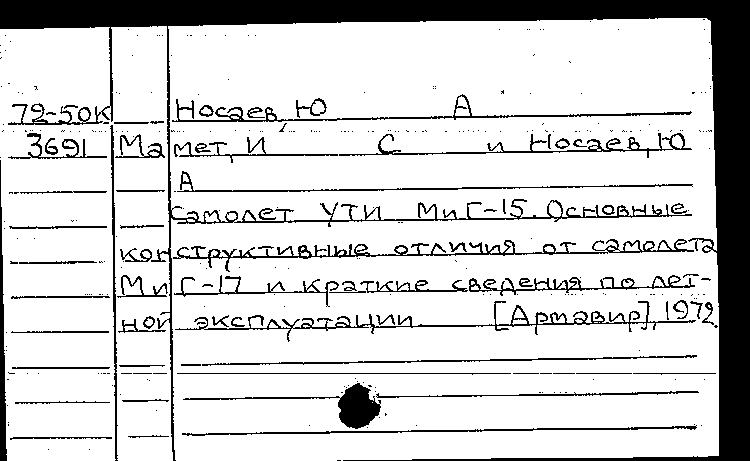 72-50к Носаев, Ю А
3691 Мамет, И С и Носаев, Ю
А
Самолет УТИ МиГ-15. Основные
конструктивные отличия от самолета
МиГ-17 и краткие сведения по лет-
ной эксплуатации [Армавир], 1972